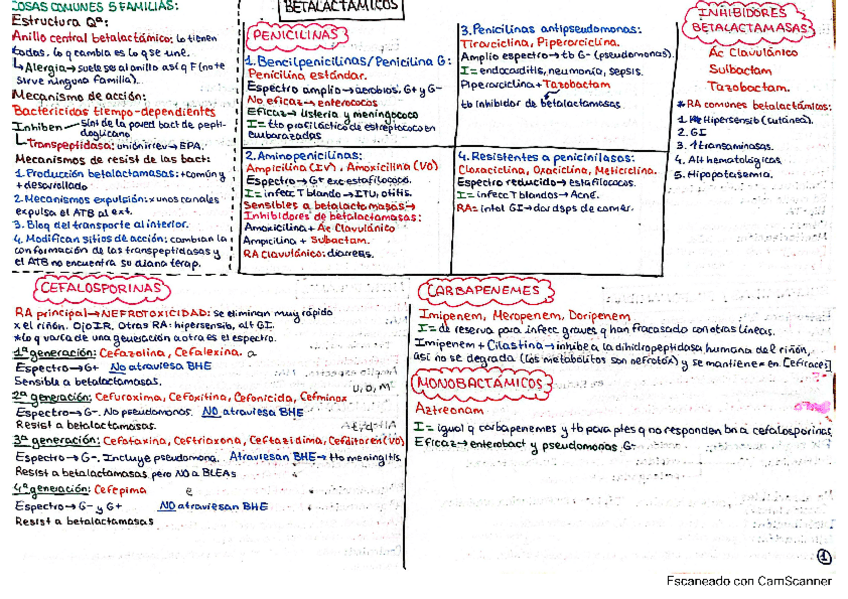 COSAS COMUNES 5 FAMILIAS:
Estructura Qª:
Anillo central betalactámico: lo tienen
todas. lo q cambia es lo q se une.
↳ Alergia→ suele se al anillo así q F (no te
sirve ninguna familia)...
Mecanismo de acción:
Bactericidas tiempo-dependientes
Inhiben síntesis de la pared bact de pepti-
doglicano
Transpeptidasa: unión irrev→ EPA.
Mecanismos de resist de las bact:
1. Producción betalactamasas: + común y
+ desarrollado
2. Mecanismos expulsión: x unos canales
expulsa el ATB al ext.
3. Bloq del transporte al interior.
4. Modifican sitios de acción: cambian la
conformación de las transpeptidasas y
el ATB no encuentra su diana terap.
BETALACTÁMICOS
PENICILINAS
1. Bencilpenicilinas/ Penicilina G:
Penicilina estándar.
Espectro amplio→ aerobios. G+ y G-
No eficaz→ enterococos
Eficaz→ listeria y meningococo
I = tto profiláctico de estreptococo en
embarazadas
2. Aminopenicilinas:
Ampicilina (IV). Amoxicilina (VO)
Espectro→ G+ exc estafilococo.
I = infecc T blando→ ITU, otitis.
Sensibles a betalactamasas→
Inhibidores de betalactamasas:
Amoxicilina + Ac Clavulánico
Ampicilina + Sulbactam.
RA Clavulánico: diarreas.
3. Penicilinas antipseudomonas:
Ticarciclina, Piperarciclina.
Amplio espectro→ tb G- (pseudomonas).
I = endocarditis, neumonía, sepsis.
Piperarciclina + Tazobactam
tb inhibidor de betalactamasas
4. Resistentes a penicinilasas:
Cloxaciclina, Oxaciclina, Meticiclina.
Espectro reducido→ estafilococos.
I = infecc T blandos→ Acné.
RA= intol GI→ dar dsps de comer.
INHIBIDORES
BETALACTAMASAS
Ac Clavulánico
Sulbactam
Tazobactam.
* RA comunes betalactámicos:
1. Hipersensib (cutánea).
2. GI
3. ↑ transaminasas.
4. Alt hematológicas
5. Hipopotasemia.
CEFALOSPORINAS
RA principal→ NEFROTOXICIDAD: se eliminan muy rápido
x el riñón. Ojo IR. Otras RA: hipersensib, alt GI.
* lo q varía de una generación a otra es el espectro.
1ª generación: Cefazolina, Cefalexina. a
Espectro→ G+ No atraviesa BHE
Sensible a betalactamasas.
2ª generación: Cefuroxima, Cefoxitina, Cefonicida, Cefminox
Espectro→ G-. No pseudomonas. NO atraviesa BHE
Resist a betalactamasas.
3ª generación: Cefotaxina, Ceftriaxona, Ceftazidima, Cefditoren (vo)
Espectro→ G-. Incluye pseudomona. Atraviesan BHE→ tto meningitis.
Resist a betalactamasas pero NO a BLEAs
4ª generación: Cefepima e
Espectro→ G- y G+ NO atraviesan BHE
Resist a betalactamasas
CARBAPENEMES
Imipenem, Meropenem, Doripenem
I = de reserva para infecc graves q han fracasado con otras líneas.
Imipenem + Cilastina→ inhibe a la dihidropeptidasa humana del riñón,
así no se degrada (los metabolitos son nefrotóx) y se mantiene
MONOBACTÁMICOS
Aztreonam
I = igual q carbapenemes y tb para ptes q no responden bn a cefalosporinas
Eficaz→ enterobact y pseudomonas. G-
1
Escaneado con CamScanner